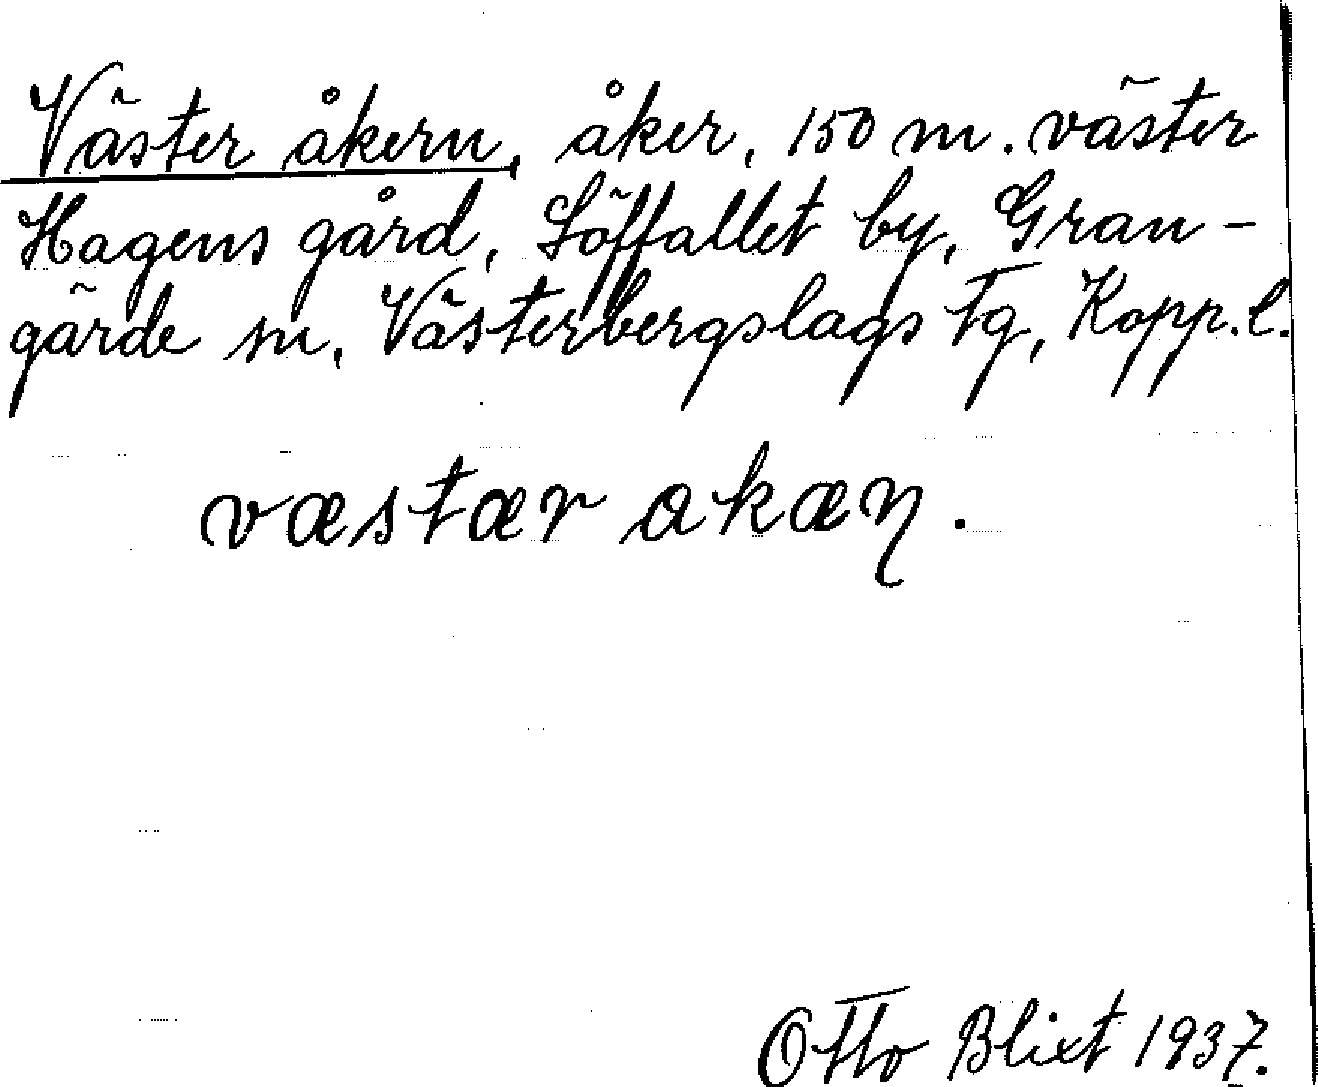 Väster åkern, åker, 150 m. väster
Hagens gård, Löffallet by, Gran-
gärde sn, Västerbergslags tg, Kopp. l.
væstær akæn.
Otto Blixt 1937.